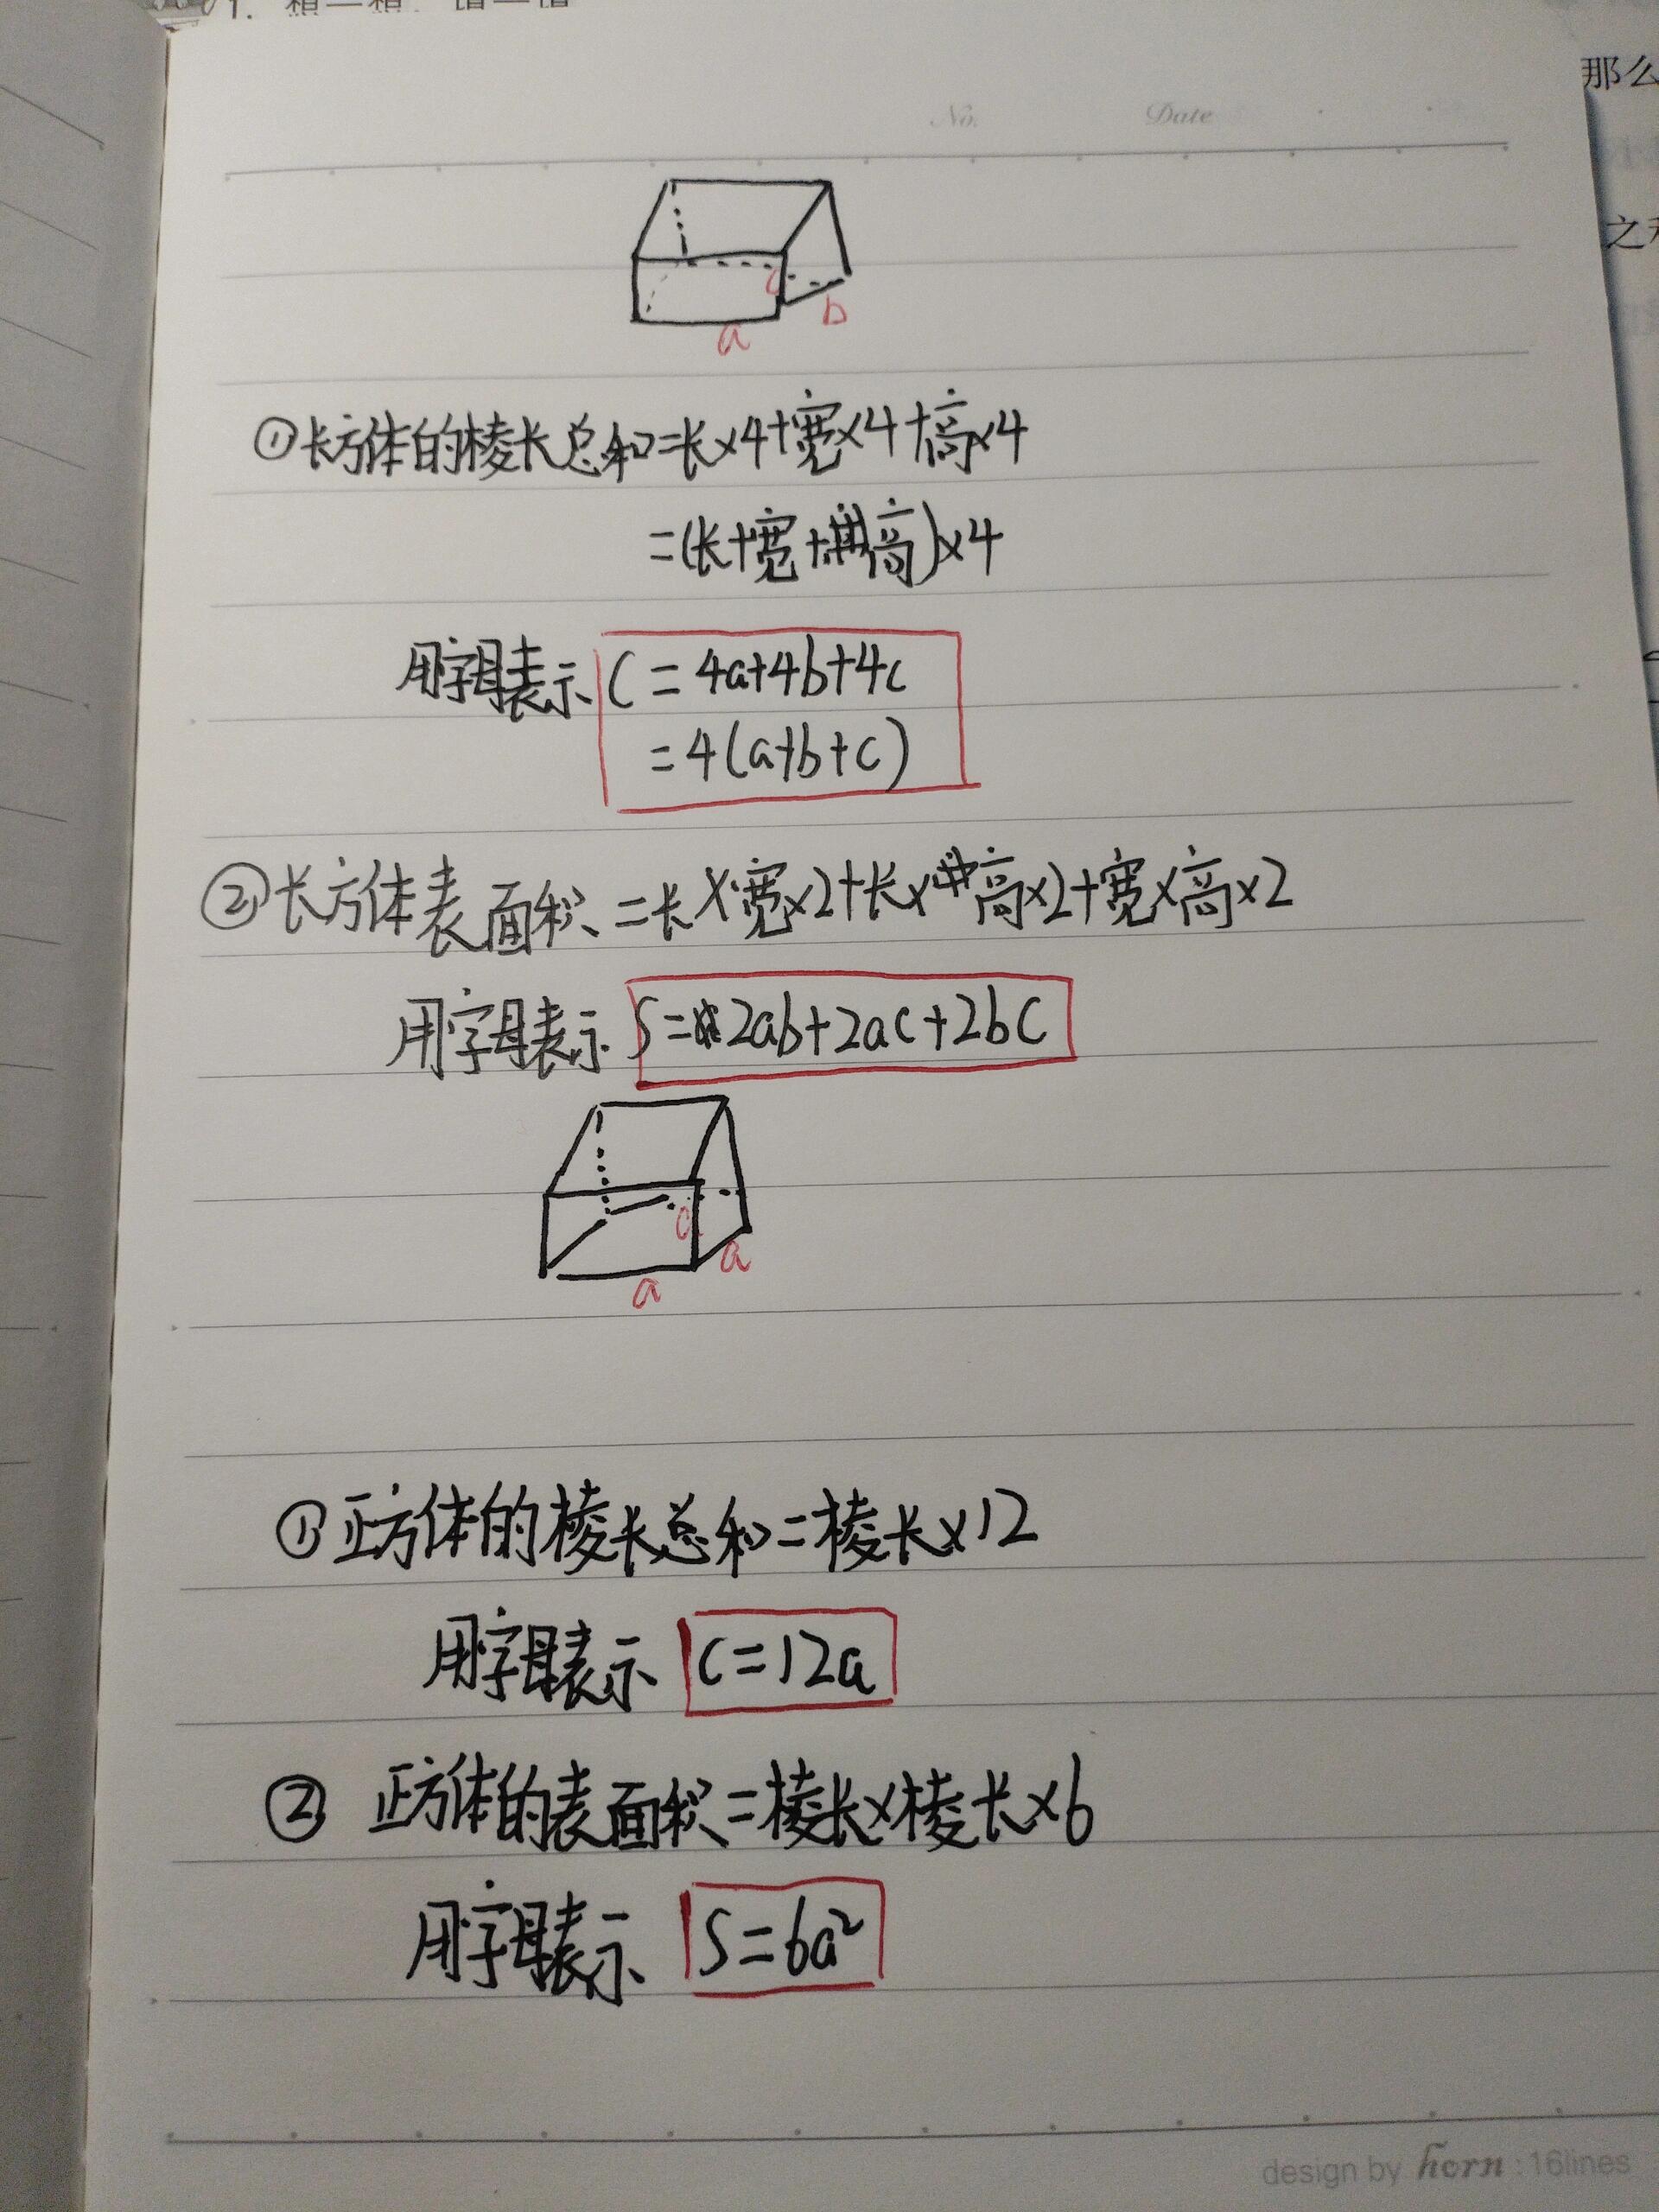 No. Date
那么
c
b
a
①长方体的棱长总和=长×4+宽×4+高×4
=(长+宽+高)×4
用字母表示 C=4a+4b+4c
=4(a+b+c)
②长方体表面积=长×宽×2+长×高×2+宽×高×2
用字母表示 S=2ab+2ac+2bc
a
a
a
①正方体的棱长总和=棱长×12
用字母表示 C=12a
② 正方体的表面积=棱长×棱长×6
用字母表示 S=6a²
design by horn:16lines